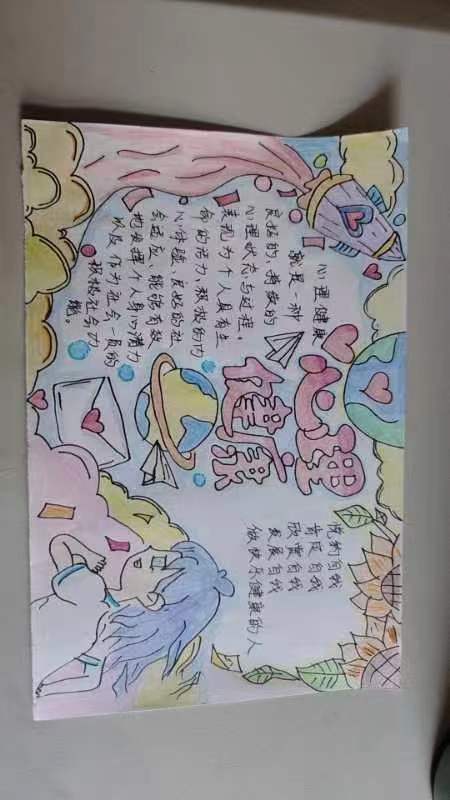 心理
健康
心理健康
就是一种
良好的、持续的
心理状态与过程,
表现为个人具有生
命的活力、积极的内
心体验、良好的社
会适应、能够有效
地发挥个人身心潜力
以及作为社会一员的
积极社会功
能。
悦纳自我
肯定自我
欣赏自我
发展自我
做快乐健康的人